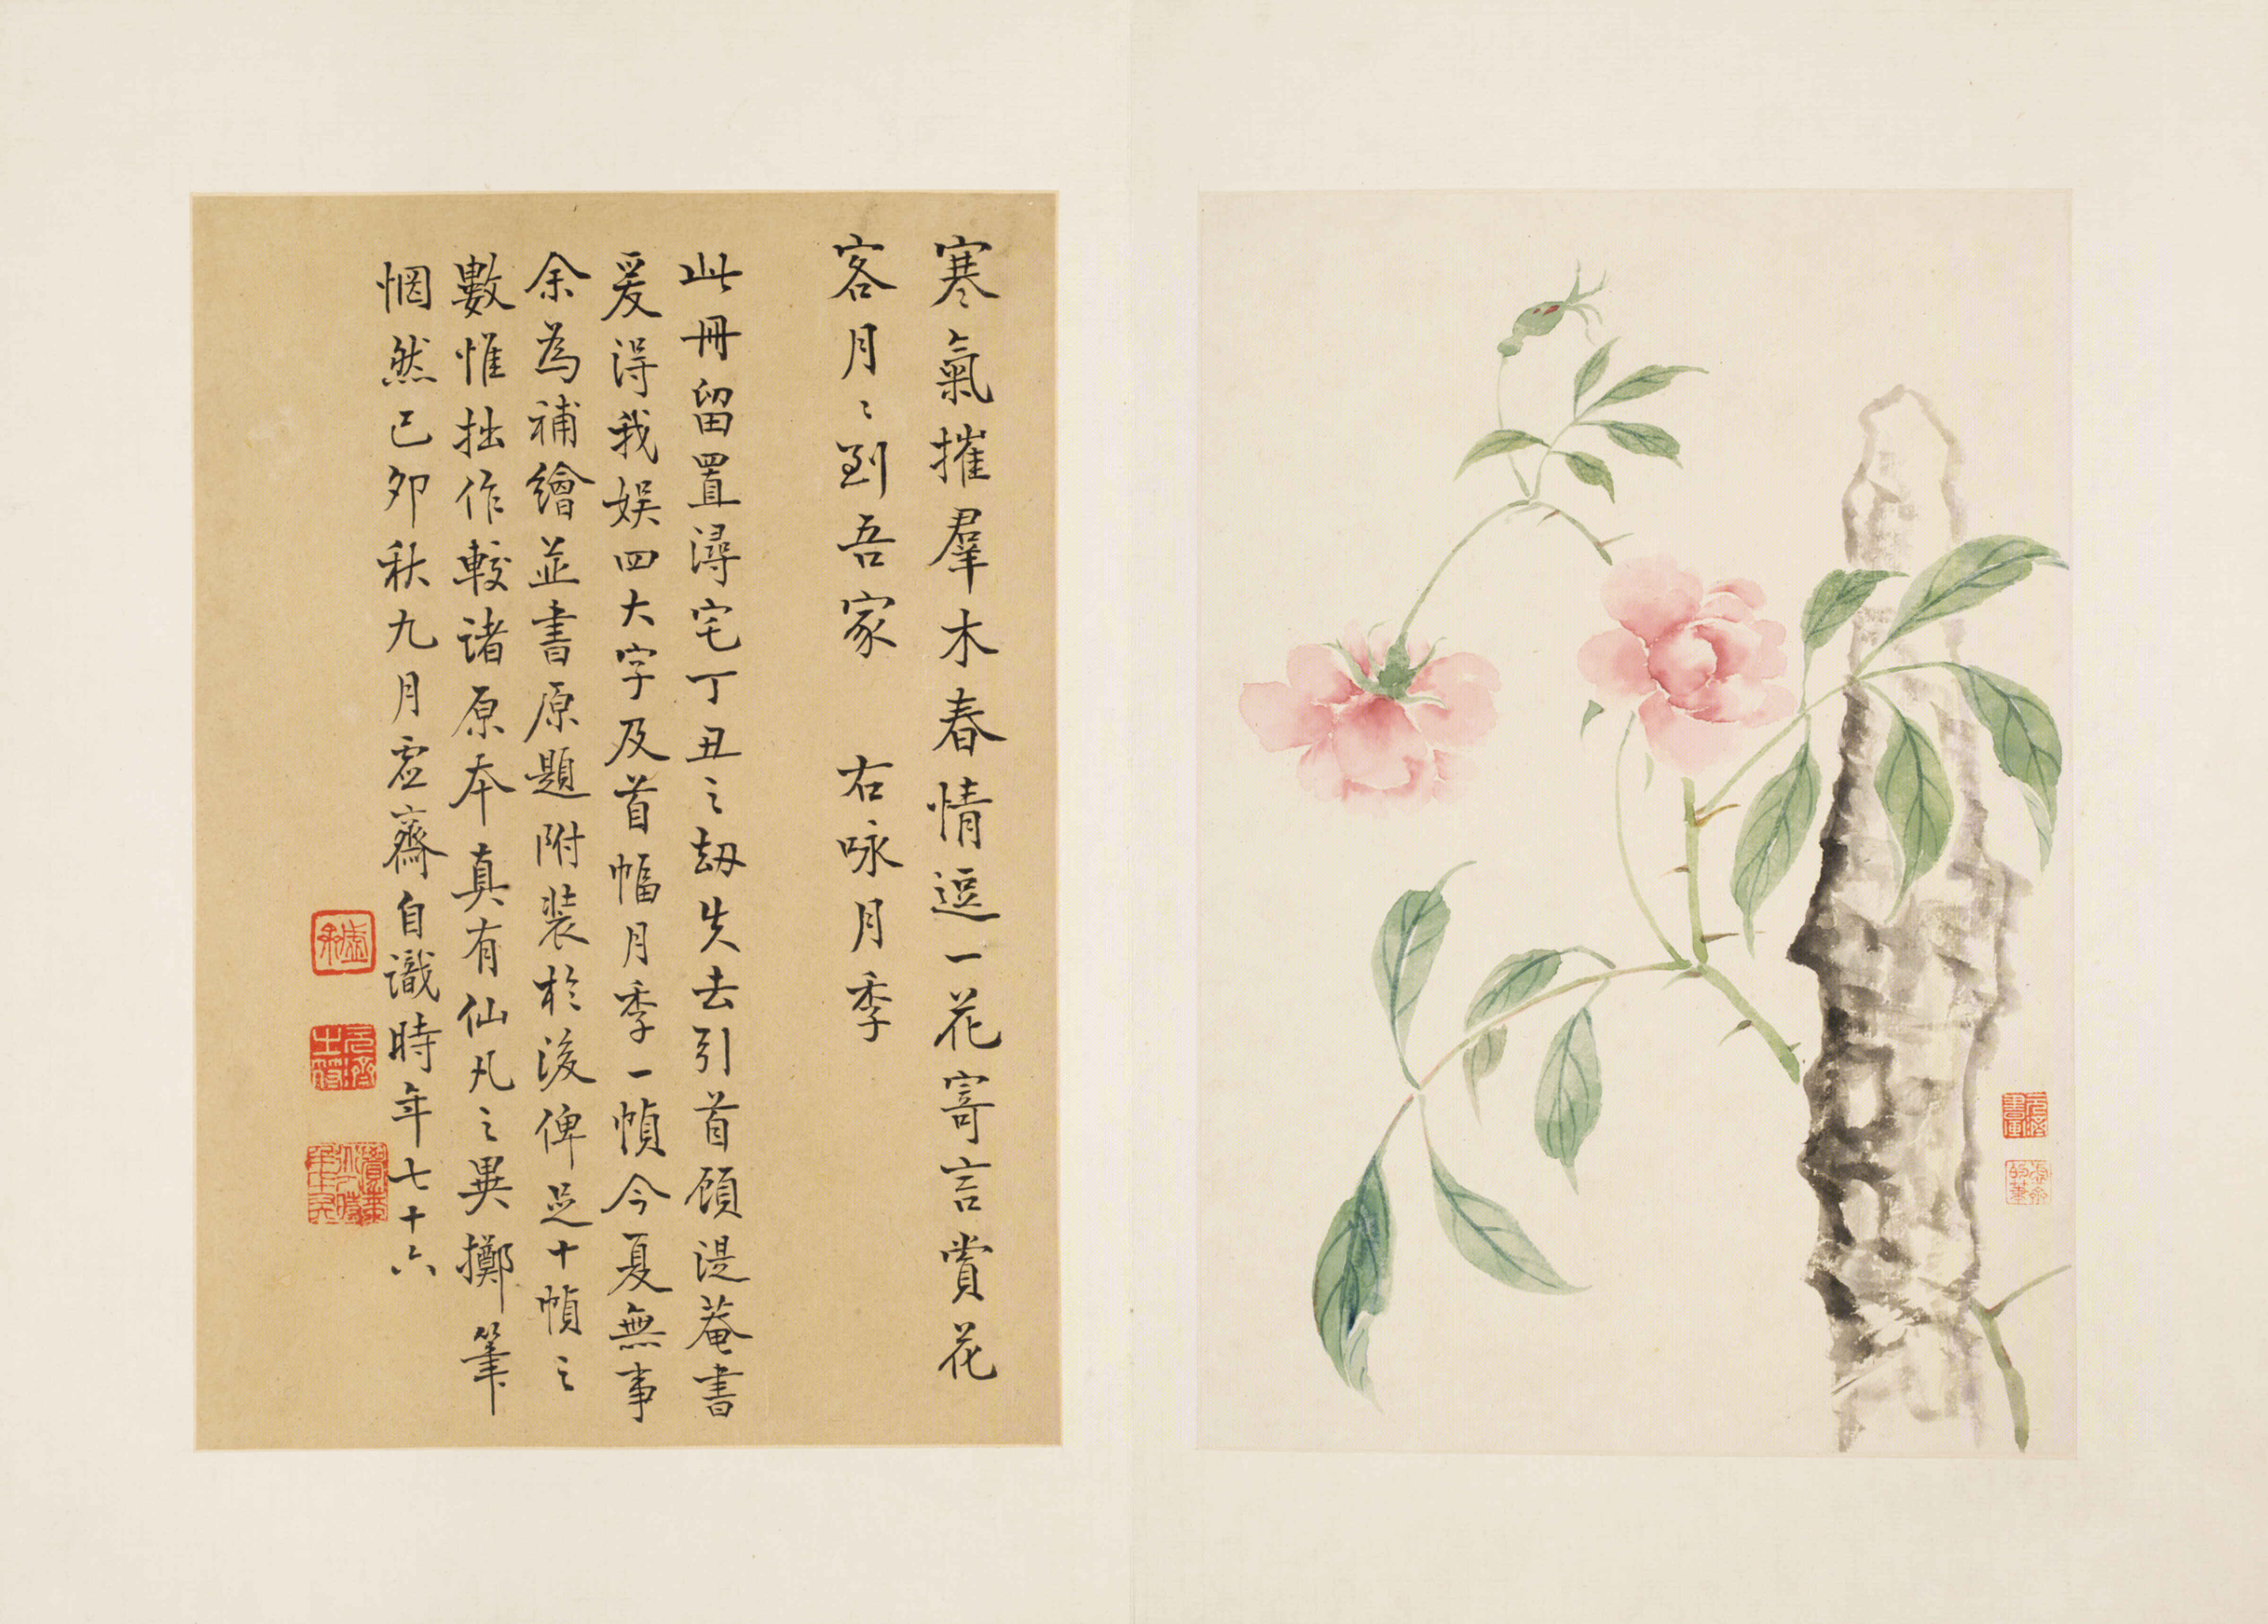 寒氣摧羣木春情逗一花寄言賞花
客月〻到吾家　右咏月季
此冊留置潯宅丁丑之劫失去引首顧湜菴書
爰得我娱四大字及首幅月季一幀今夏無事
余為補繪並書原題附裝於後俾足十幀之
數惟拙作較諸原本真有仙凡之異擲筆
惘然己卯秋九月虛齋自識時年七十六